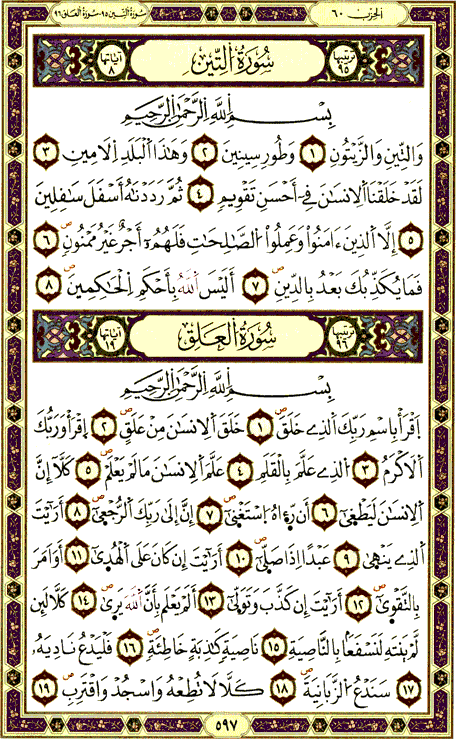 الحزب ٦٠
سورة التين ٩٥ - سورة العلق ٩٦
ترتيبها ٩٥ سُورَةُ التِّينِ آياتها ٨
بِسْمِ اللَّهِ الرَّحْمَٰنِ الرَّحِيمِ
وَالتِّينِ وَالزَّيْتُونِ ١ وَطُورِ سِينِينَ ٢ وَهَٰذَا الْبَلَدِ الْأَمِينِ ٣
لَقَدْ خَلَقْنَا الْإِنسَانَ فِي أَحْسَنِ تَقْوِيمٍ ٤ ثُمَّ رَدَدْنَاهُ أَسْفَلَ سَافِلِينَ
٥ إِلَّا الَّذِينَ ءَامَنُوا وَعَمِلُوا الصَّالِحَاتِ فَلَهُمْ أَجْرٌ غَيْرُ مَمْنُونٍ ٦
فَمَا يُكَذِّبُكَ بَعْدُ بِالدِّينِ ٧ أَلَيْسَ اللَّهُ بِأَحْكَمِ الْحَاكِمِينَ ٨
ترتيبها ٩٦ سُورَةُ الْعَلَقِ آياتها ١٩
بِسْمِ اللَّهِ الرَّحْمَٰنِ الرَّحِيمِ
اقْرَأْ بِاسْمِ رَبِّكَ الَّذِي خَلَقَ ١ خَلَقَ الْإِنسَانَ مِنْ عَلَقٍ ٢ اقْرَأْ وَرَبُّكَ
الْأَكْرَمُ ٣ الَّذِي عَلَّمَ بِالْقَلَمِ ٤ عَلَّمَ الْإِنسَانَ مَا لَمْ يَعْلَمْ ٥ كَلَّا إِنَّ
الْإِنسَانَ لَيَطْغَىٰ ٦ أَن رَّءَاهُ اسْتَغْنَىٰ ٧ إِنَّ إِلَىٰ رَبِّكَ الرُّجْعَىٰ ٨ أَرَأَيْتَ
الَّذِي يَنْهَىٰ ٩ عَبْدًا إِذَا صَلَّىٰ ١٠ أَرَأَيْتَ إِن كَانَ عَلَى الْهُدَىٰ ١١ أَوْ أَمَرَ
بِالتَّقْوَىٰ ١٢ أَرَأَيْتَ إِن كَذَّبَ وَتَوَلَّىٰ ١٣ أَلَمْ يَعْلَم بِأَنَّ اللَّهَ يَرَىٰ ١٤ كَلَّا لَئِن
لَّمْ يَنتَهِ لَنَسْفَعًا بِالنَّاصِيَةِ ١٥ نَاصِيَةٍ كَاذِبَةٍ خَاطِئَةٍ ١٦ فَلْيَدْعُ نَادِيَهُ
١٧ سَنَدْعُ الزَّبَانِيَةَ ١٨ كَلَّا لَا تُطِعْهُ وَاسْجُدْ وَاقْتَرِب ١٩
٥٩٧